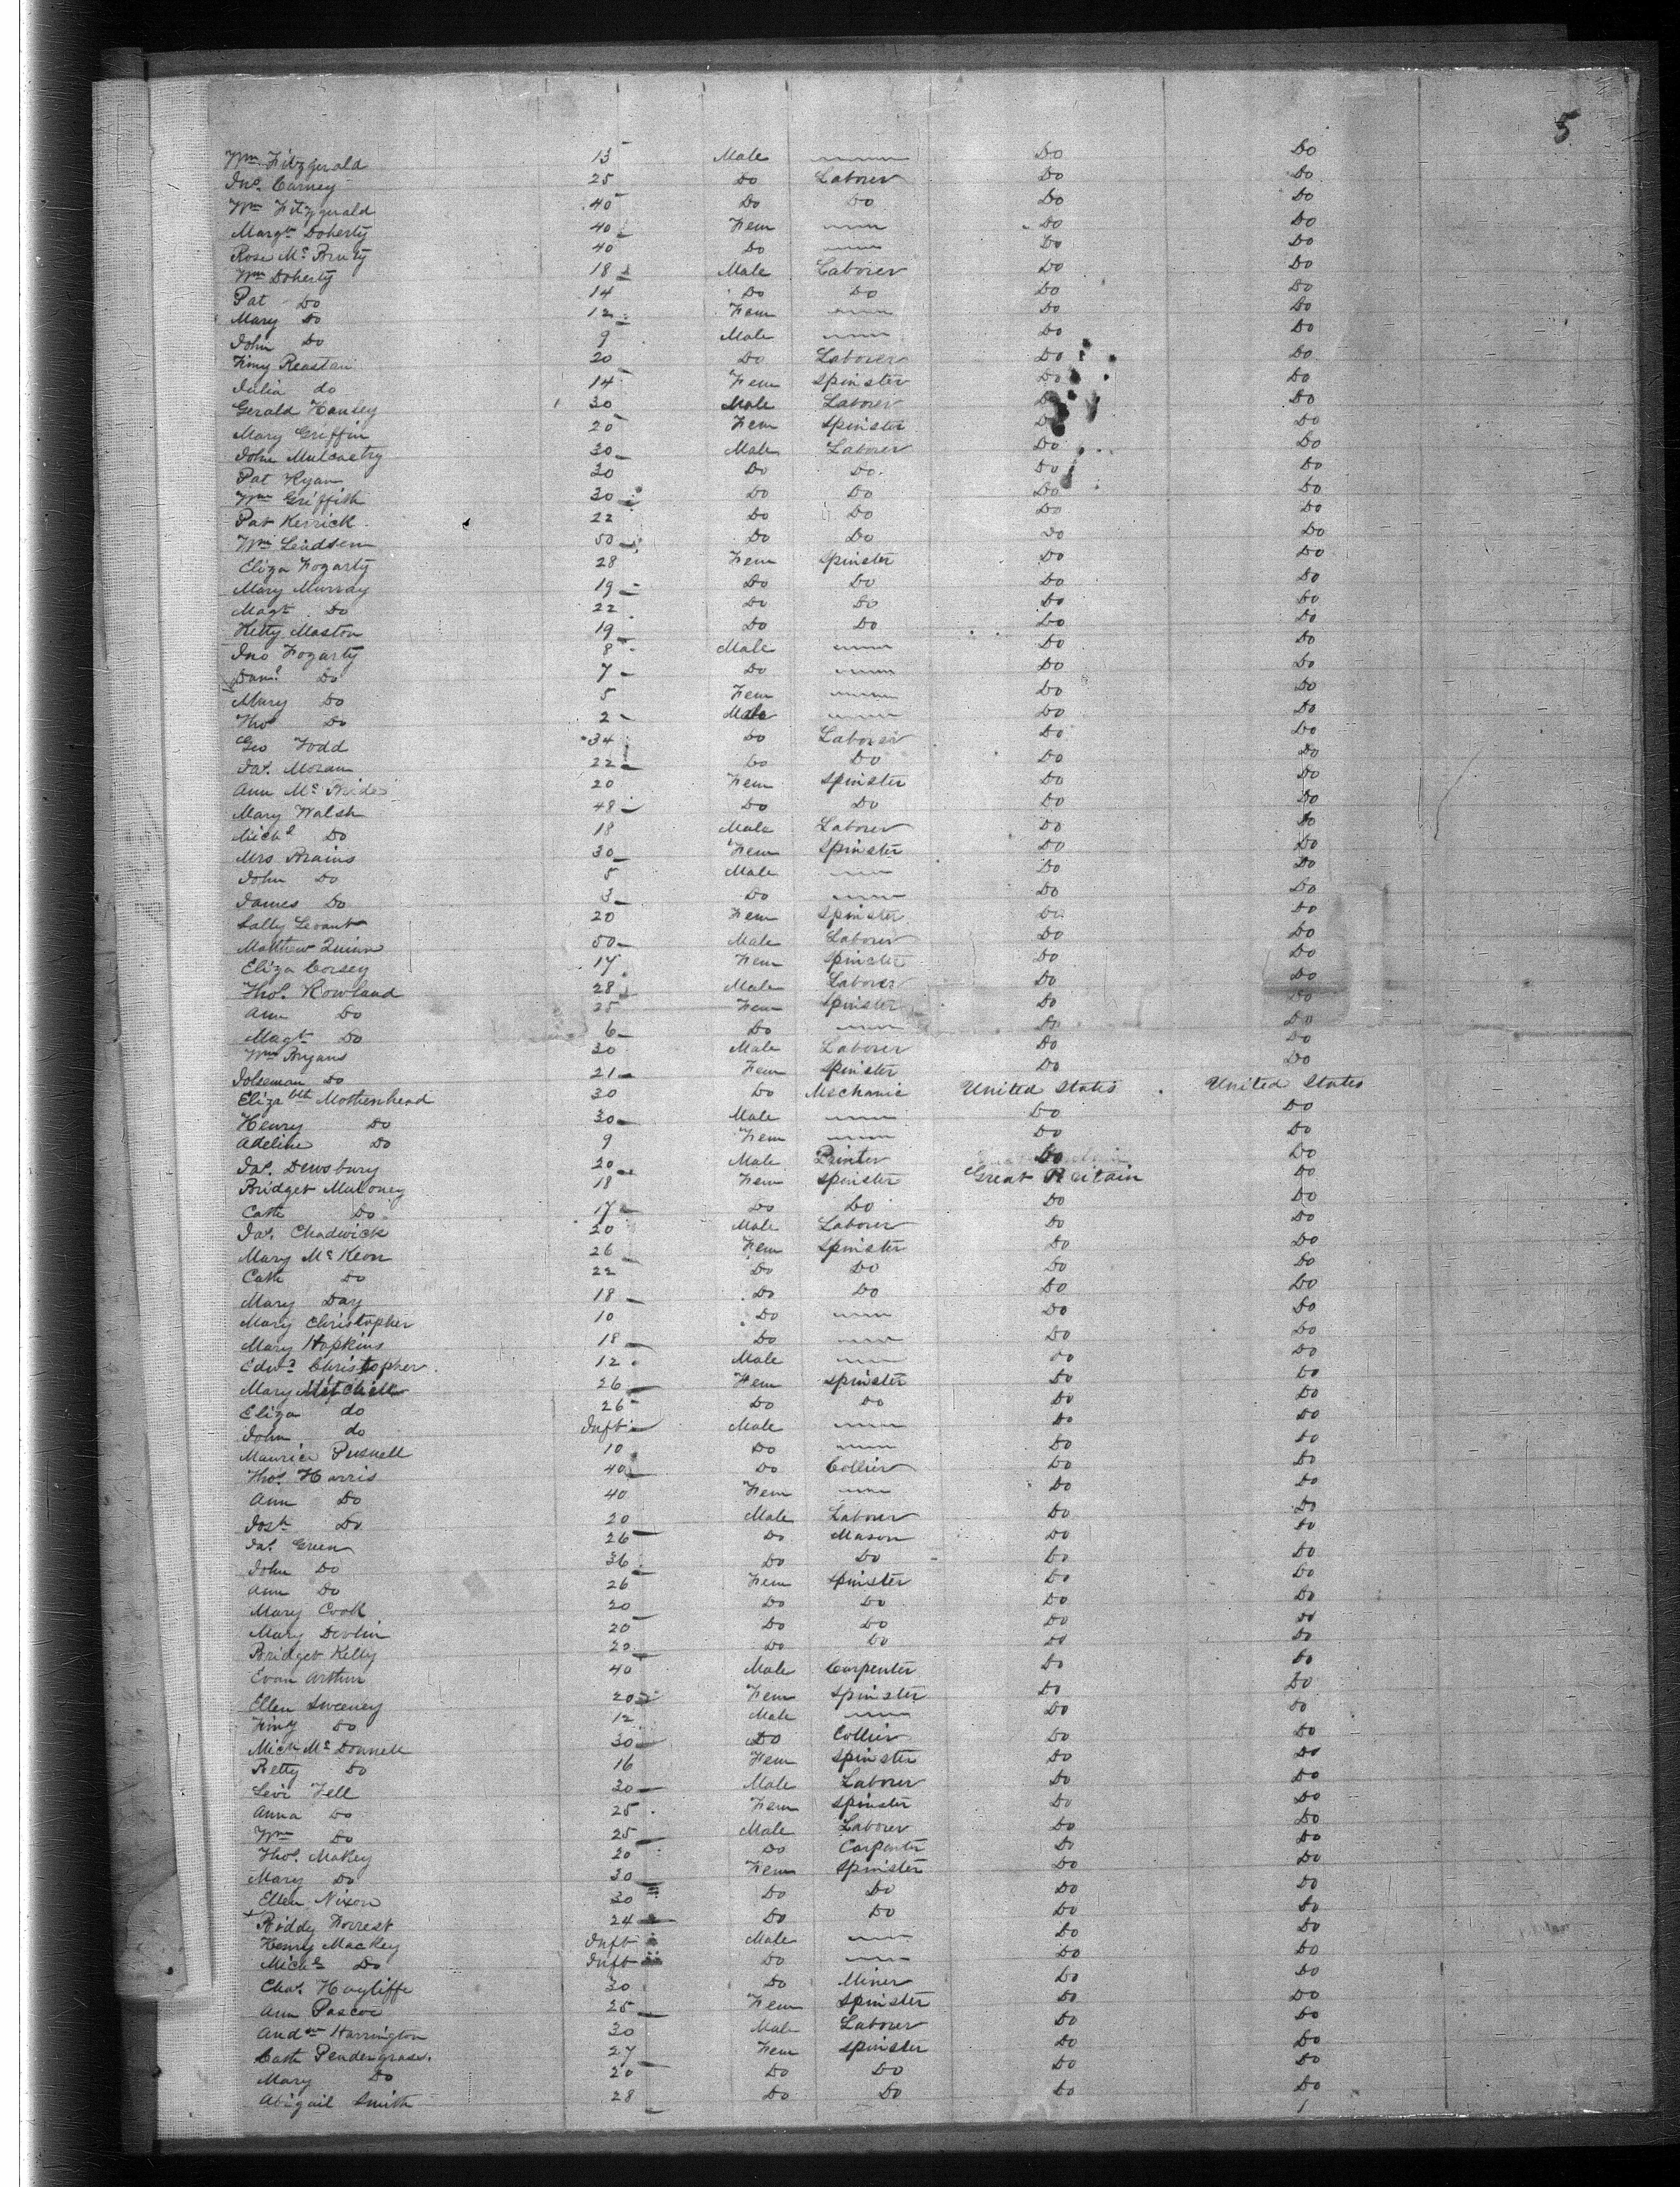 5
Wm Fitzgerald 13 Male Do Do
Jno. Carney 25 Do Laborer Do Do
Wm Fitzgerald 40 Do Do Do Do
Margt Doherty 40 Fem Do Do
Rose Mc 40 Do Do Do
Wm Doherty 18 Male Laborer Do Do
Pat Do 14 Do Do Do Do
Mary Do 12 Fem Do Do
John Do 9 Male Do Do
20 Do Laborer Do Do
Julia do 14 Fem Spinster Do Do
Gerald 30 Male Laborer Do Do
Mary Griffin 20 Fem Spinster Do Do
John Mulcaetry 30 Male Laborer Do Do
Pat Ryan 30 Do Do Do Do
Wm Griffith 30 Do Do Do Do
Pat Kerrick 22 Do Do Do Do
Wm 50 Do Do Do Do
Eliza Fogarty 28 Fem Spinster Do Do
Mary Murray 19 Do Do Do Do
Magt Do 22 Do Do Do Do
Kitty Maston 19 Do Do Do Do
Jno Fogarty 8 Male Do Do
Danl Do 7 Do Do Do
Mary Do 5 Fem Do Do
Thos Do 2 Male Do Do
Geo Todd 34 Do Laborer Do Do
Jas. Moran 22 Do Do Do Do
Ann Mc 20 Fem Spinster Do Do
Mary Walsh 48 Do Do Do Do
Michl Do 18 Male Laborer Do Do
Mrs Brains 30 Fem Spinster Do Do
John Do 5 Male Do Do
James Do 3 Do Do Do
Sally Levant 20 Fem Spinster Do Do
Matthew Quinn 50 Male Laborer Do Do
Eliza Corsey 17 Fem Spinster Do Do
Thos. Rowland 28 Male Laborer Do Do
Ann Do 25 Fem Spinster Do Do
Magt Do 6 Do Do Do
Wm Bryans 30 Male Laborer Do Do
Do 21 Fem Spinster Do Do
Elizabth Mothershead 30 Do Mechanic United States United States
Henry Do 30 Male Do Do
Adeline Do 9 Fem Do Do
Jas. Dewsbury 20 Male Printer Do Do
Bridget Maloney 18 Fem Spinster Great Britain Do
Cath Do 17 Do Do Do Do
Jas. Chadwick 20 Male Laborer Do Do
Mary McKeon 26 Fem Spinster Do Do
Cath Do 22 Do Do Do Do
Mary Day 18 Do Do Do Do
Mary Christopher 10 Do Do Do
Mary Hopkins 18 Do Do Do
Edwd Christopher 12 Male Do Do
Mary Mitchell 26 Fem Spinster Do Do
Eliza do 26 Do Do Do Do
John do Inft Male Do Do
Maurice Pusnell 10 Do Do Do
Thos. Harris 40 Do Collier Do Do
Ann Do 40 Fem Do Do
Josh Do 20 Male Laborer Do Do
Jas. Green 26 Do Mason Do Do
John Do 36 Do Do Do Do
Ann Do 26 Fem Spinster Do Do
Mary Cook 20 Do Do Do Do
Mary Devlin 20 Do Do Do Do
Bridget Kelly 20 Do Do Do Do
Evan Arthur 40 Male Carpenter Do Do
Ellen Sweeney 20 Fem Spinster Do Do
Do 12 Male Do Do
Mich McDonnell 30 Do Collier Do Do
Betty Do 16 Fem Spinster Do Do
Levi Fell 30 Male Laborer Do Do
Anna Do 25 Fem Spinster Do Do
Wm Do 25 Male Laborer Do Do
Thos. Makey 20 Do Carpenter Do Do
Mary Do 30 Fem Spinster Do Do
Ellen Nixon 30 Do Do Do Do
Biddy Forrest 24 Do Do Do Do
Henry Mackey Inft Male Do Do
Michl Do Inft Do Do Do
Chas. Hayliffe 30 Do Miner Do Do
Ann Pascoe 25 Fem Spinster Do Do
Andw Harrington 30 Male Laborer Do Do
Cath Pendergrass. 27 Fem Spinster Do Do
Mary Do 20 Do Do Do Do
Abigail Smith 28 Do Do Do Do